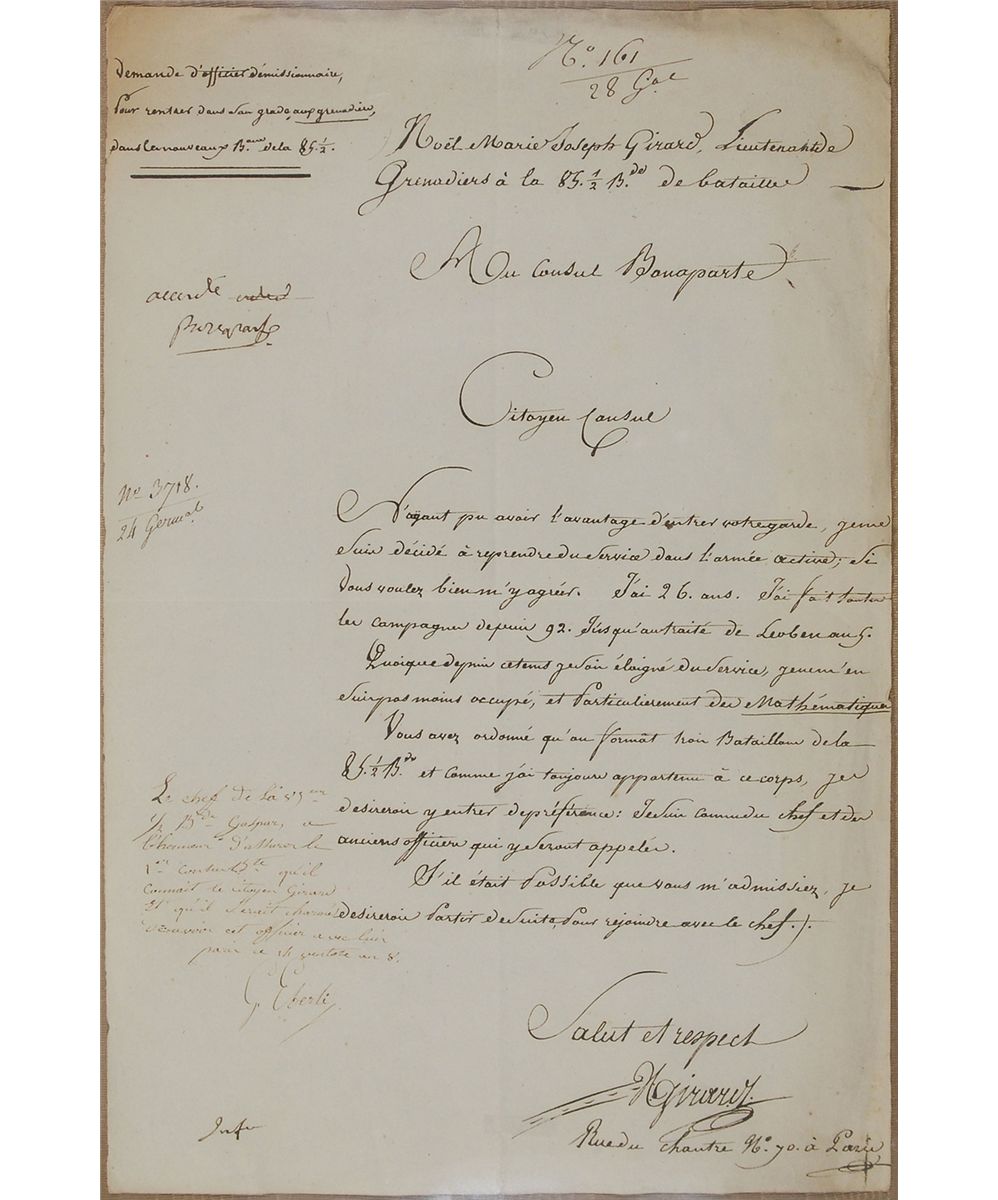 N.° 161
28 G.al
Demande d'officier démissionnaire,
Pour rentrer dans son grade, aux grenadiers,
dans les nouveaux B.ons de la 85.½.
Noël Marie Joseph Girard, Lieutenant de
Grenadiers à la 85.½ B.de de bataille
Au Consul Bonaparte
accordé
Citoyen Consul
N.° 3718.
24 Germal
N'ayant pu avoir l'avantage d'entrer votre garde, je me
suis décidé à reprendre du service dans l'armée active; si
vous voulez bien m'y agréer. J'ai 26. ans. J'ai fait toutes
les campagnes depuis 92. Jusqu'au traité de Leoben an 5.
Quoique depuis ce tems je sois éloigné du service, je ne m'en
suis pas moins occupé, et Particulierement des Mathématiques
Vous avez ordonné qu'on formât trois Bataillons de la
85.½ B.de et comme j'ai toujours appartenu à ce corps, je
desirerois y entrer de préférence: Je suis connu du chef et des
anciens officiers qui y seront appelés.
S'il était Possible que vous m'admissiez, je
desirerois Partir de suite, Pour rejoindre avec le chef.
Le chef de la 85eme
½ B.de Gaspar, a
l'honneur d'assurer le
1er Consul qu'il
connait le citoyen Girard
Et qu'il serait charmé
recevoir cet officier avec lui
paris ce 14 ventose an 8.
G. Eberlé
Salut et respect
N Girard
Rue du Chantre N.° 70. à Paris